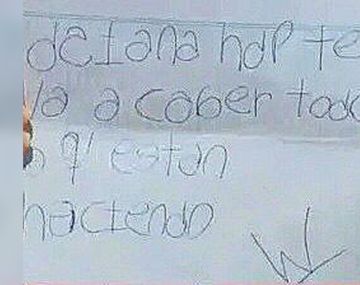 detana hdp te
a a caber todo
q' estan
haciendo
W